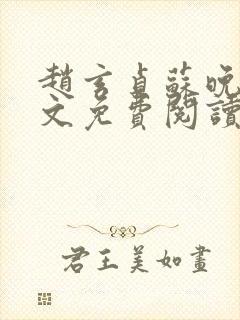 趙玄貞蘇晚
文免費閱讀
君王美如畫